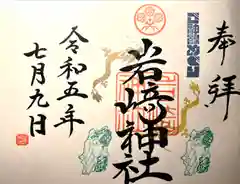 奉拝
岩﨑神社
令和五年
七月九日